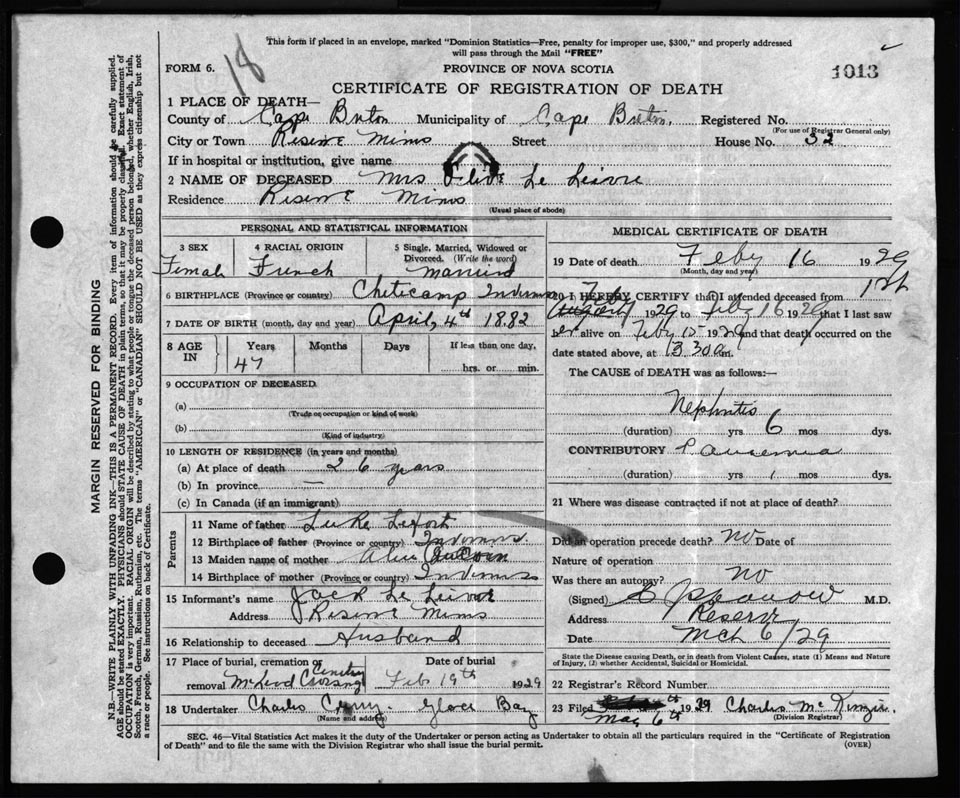 This form if placed in an envelope, marked "Dominion Statistics—Free, penalty for improper use, $300," and properly addressed
will pass through the Mail "FREE"
18
1013
FORM 6.
PROVINCE OF NOVA SCOTIA
CERTIFICATE OF REGISTRATION OF DEATH
MARGIN RESERVED FOR BINDING
N.B.—WRITE PLAINLY WITH UNFADING INK—THIS IS A PERMANENT RECORD. Every item of information should be carefully supplied.
AGE should be stated EXACTLY. PHYSICIANS should STATE CAUSE OF DEATH in plain terms, so that it may be properly classified. Exact statement of
OCCUPATION is very important. RACIAL ORIGIN will be described by stating to what people or tongue the deceased person belonged, whether English, Irish,
Scotch, French, German, Russian, Ruthenian, etc. The terms "AMERICAN" or "CANADIAN" SHOULD NOT BE USED as they express citizenship but not
a race or people. See instructions on back of Certificate.
1 PLACE OF DEATH—
County of Cape Breton Municipality of Cape Breton Registered No.
(For use of Registrar General only)
City or Town Reserve Mines Street House No. 32
If in hospital or institution, give name
2 NAME OF DECEASED Mrs Le
Residence Reserve Mines
(Usual place of abode)
PERSONAL AND STATISTICAL INFORMATION
3 SEX Female
4 RACIAL ORIGIN French
5 Single, Married, Widowed or Divorced. (Write the word) Married
6 BIRTHPLACE (Province or country) Cheticamp Inverness
7 DATE OF BIRTH (month, day and year) April, 4th 1882
8 AGE IN Years 47 Months Days If less than one day, hrs. or min.
9 OCCUPATION OF DECEASED
(a)
(Trade or occupation or kind of work)
(b)
(Kind of industry)
10 LENGTH OF RESIDENCE (in years and months)
(a) At place of death 26 years
(b) In province —
(c) In Canada (if an immigrant)
Parents
11 Name of father Luke Lefort
12 Birthplace of father (Province or country) Inverness
13 Maiden name of mother
14 Birthplace of mother (Province or country) Inverness
15 Informant's name Jack Le
Address Reserve Mines
16 Relationship to deceased Husband
17 Place of burial, cremation or removal McLeod Crossing Cemetery
Date of burial Feb 19th 1929
18 Undertaker Charles Glace Bay
(Name and address)
MEDICAL CERTIFICATE OF DEATH
19 Date of death Feby 16 1929
(Month, day and year)
20 I HEREBY CERTIFY that I attended deceased from Feby 1st
1929 to Feby 16 1929 that I last saw
her alive on Feby 15 1929 and that death occurred on
date stated above, at 3.30 am.
The CAUSE OF DEATH was as follows:—
Nephritis
(duration) yrs 6 mos dys.
CONTRIBUTORY
(duration) yrs 1 mos dys.
21 Where was disease contracted if not at place of death?
Did an operation precede death? No Date of
Nature of operation
Was there an autopsy? No
(Signed) M.D.
Address Reserve
Date Mch 6/29
State the Disease causing Death, or in death from Violent Causes, state (1) Means and Nature
of Injury, (2) whether Accidental, Suicidal or Homicidal.
22 Registrar's Record Number
23 Filed 6th 1929 Charles
(Division Registrar)
SEC. 46—Vital Statistics Act makes it the duty of the Undertaker or person acting as Undertaker to obtain all the particulars required in the "Certificate of Registration
of Death" and to file the same with the Division Registrar who shall issue the burial permit.
(OVER)